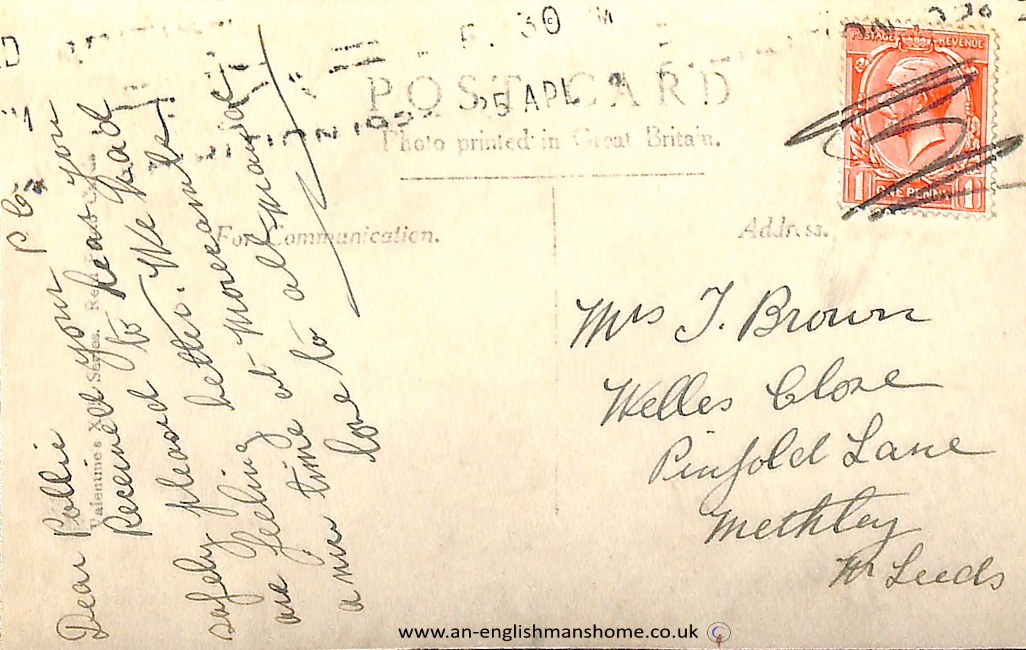 POST CARD
Photo printed in Great Britain.
For Communication.
Address.
POSTAGE REVENUE
1 ONE PENNY 1
30
25 APL
Valentine's Series.
Dear Pollie your P C
Received to hear you
safely pleased
are feeling better. We had
a nice time at Morecambe
love to all Maud
Mrs J. Brown
Welles Close
Pinfold Lane
Methley
Nr Leeds
www.an-englishmanshome.co.uk